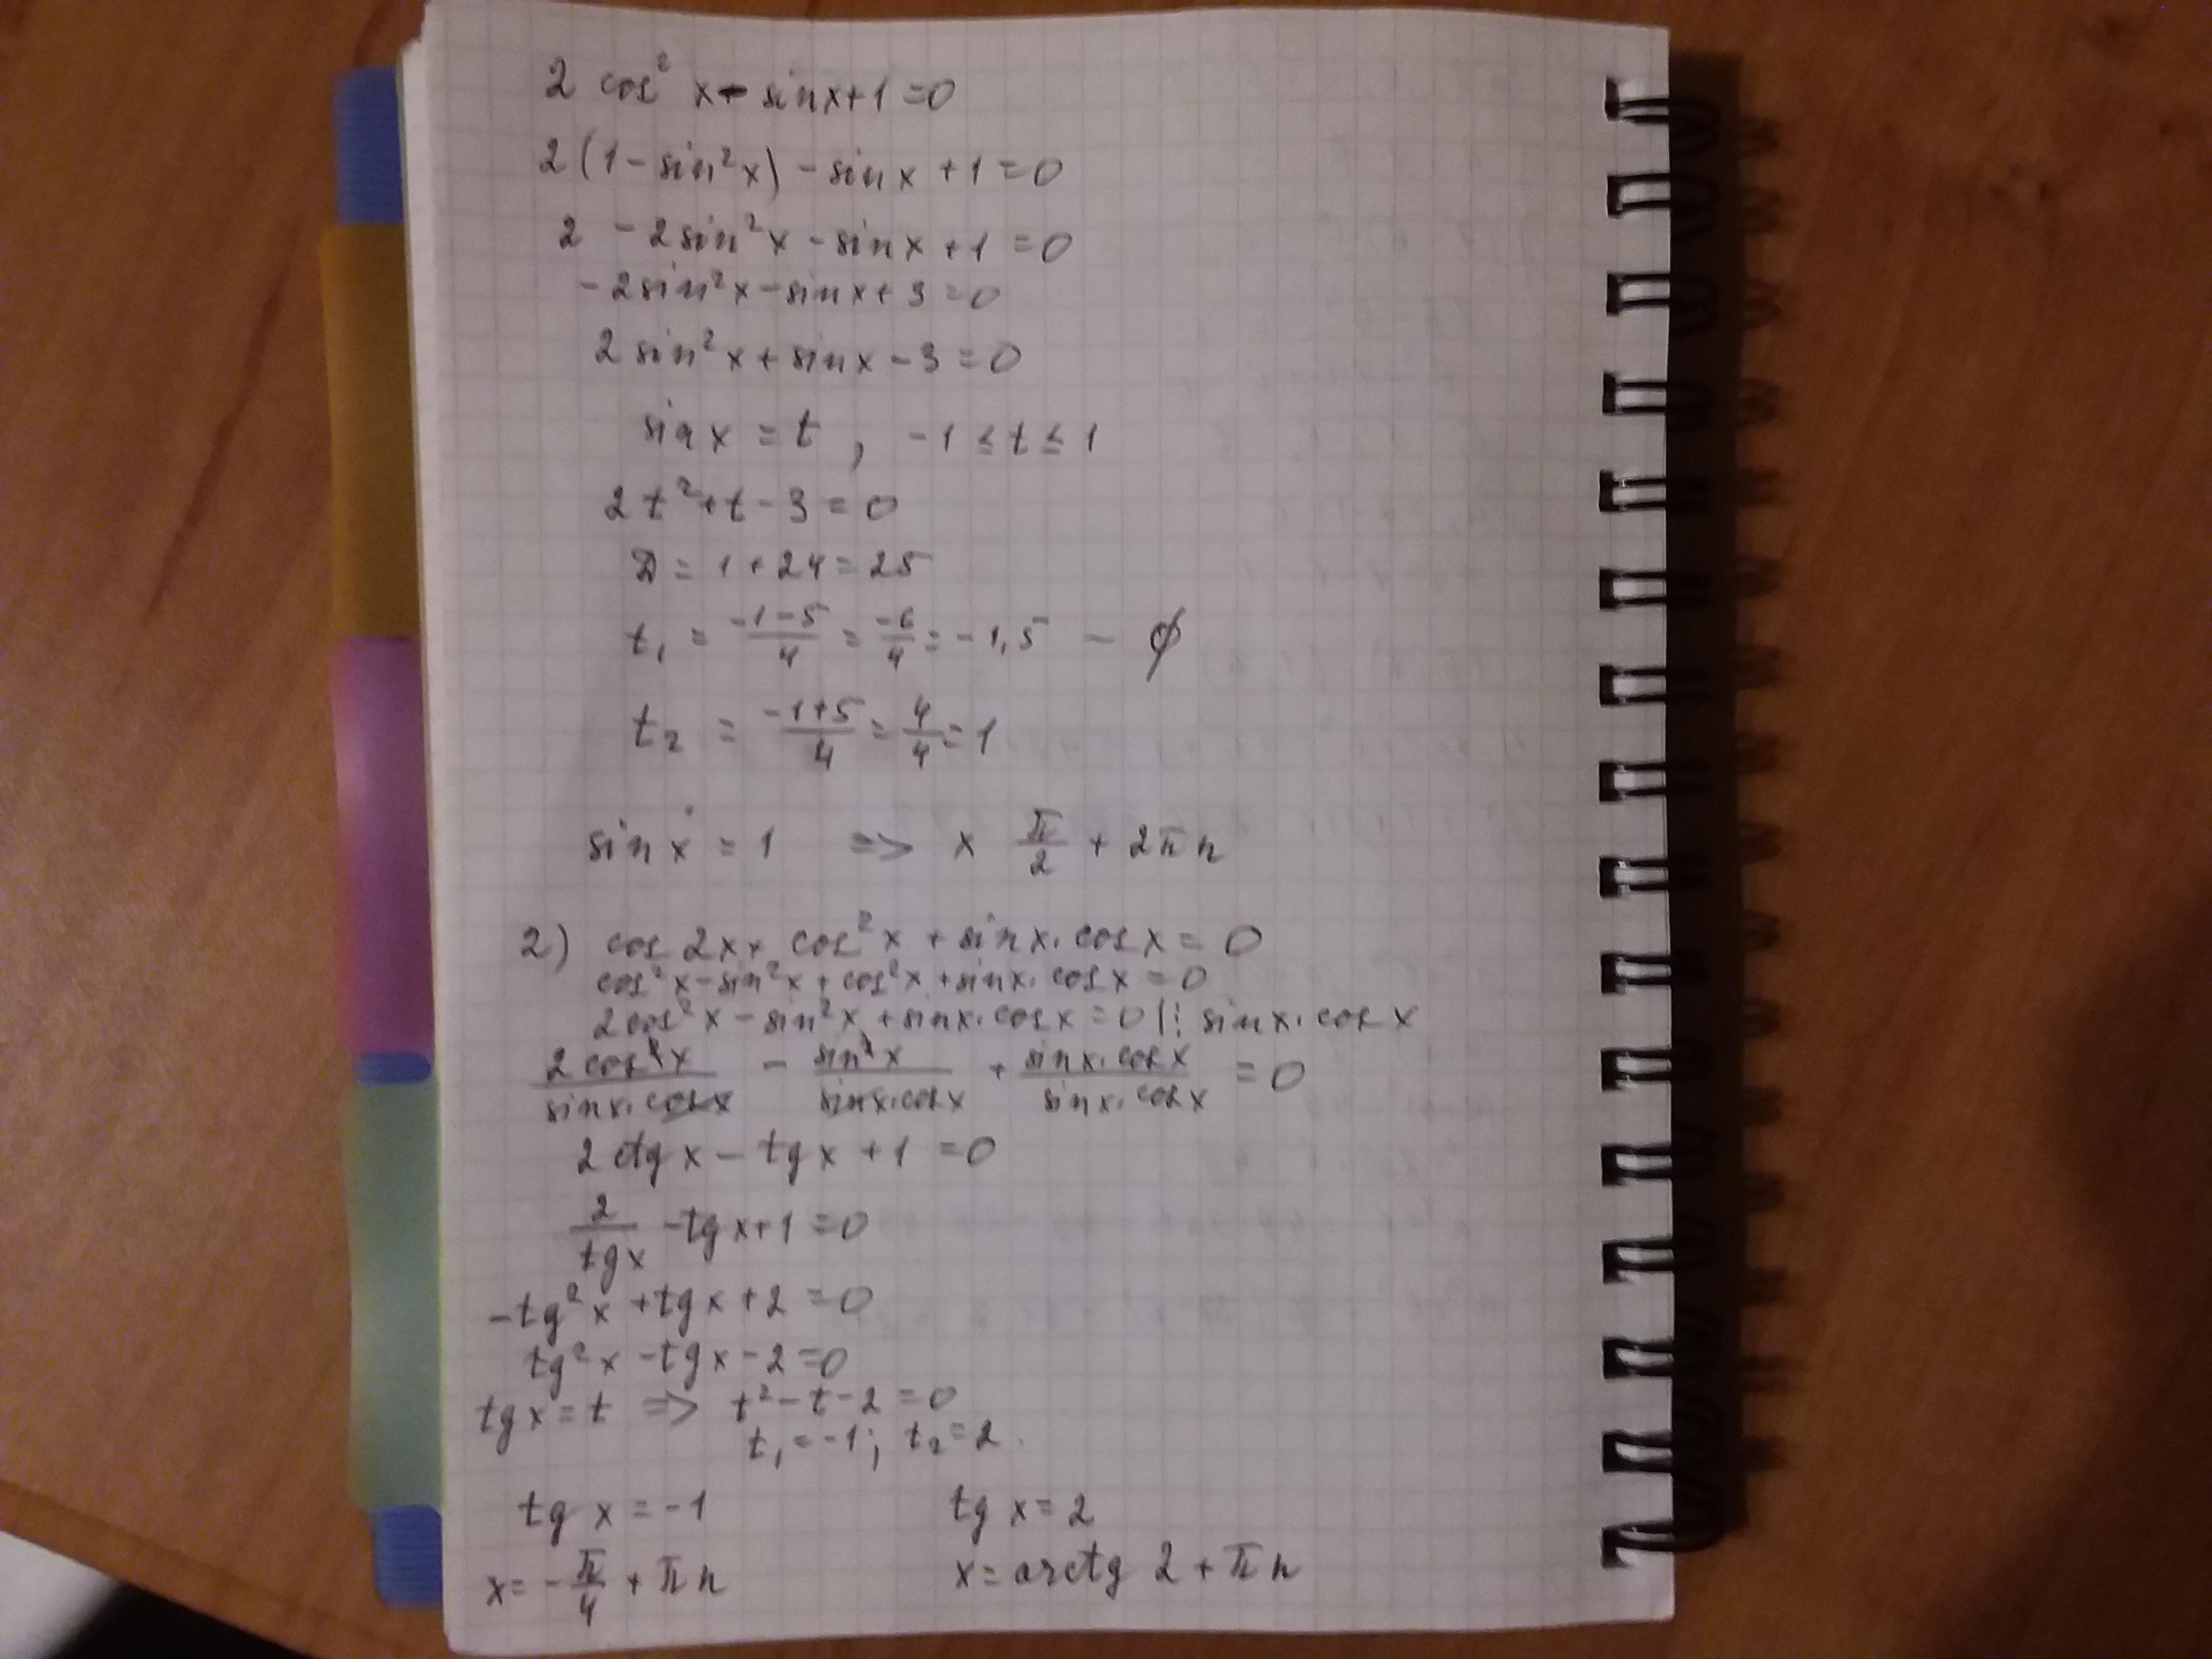 2 cos² x - sinx+1=0
2(1-sin²x) - sinx +1=0
2 -2sin²x - sinx +1 =0
-2sin²x-sinx+3=0
2 sin²x + sinx - 3 =0
sinx = t , -1 ≤ t ≤ 1
2t²+t-3=0
D = 1+24=25
t₁ = -1-5/4 = -6/4 = -1,5 - ∅
t₂ = -1+5/4 = 4/4 = 1
sin x = 1 => x π/2 + 2πn
2) cos 2x + cos²x + sinx·cosx = 0
cos²x - sin²x + cos²x + sinx·cosx = 0
2cos²x - sin²x + sinx·cosx = 0 |: sinx·cosx
2cos²x/sinx·cosx - sin²x/sinx·cosx + sinx·cosx/sinx·cosx = 0
2ctgx - tgx +1 =0
2/tgx -tgx+1=0
-tg²x +tgx+2=0
tg²x -tgx-2=0
tgx=t => t²-t-2=0
t₁=-1; t₂=2.
tg x = -1 tg x = 2
x=-π/4 + πn x = arctg 2 + πn